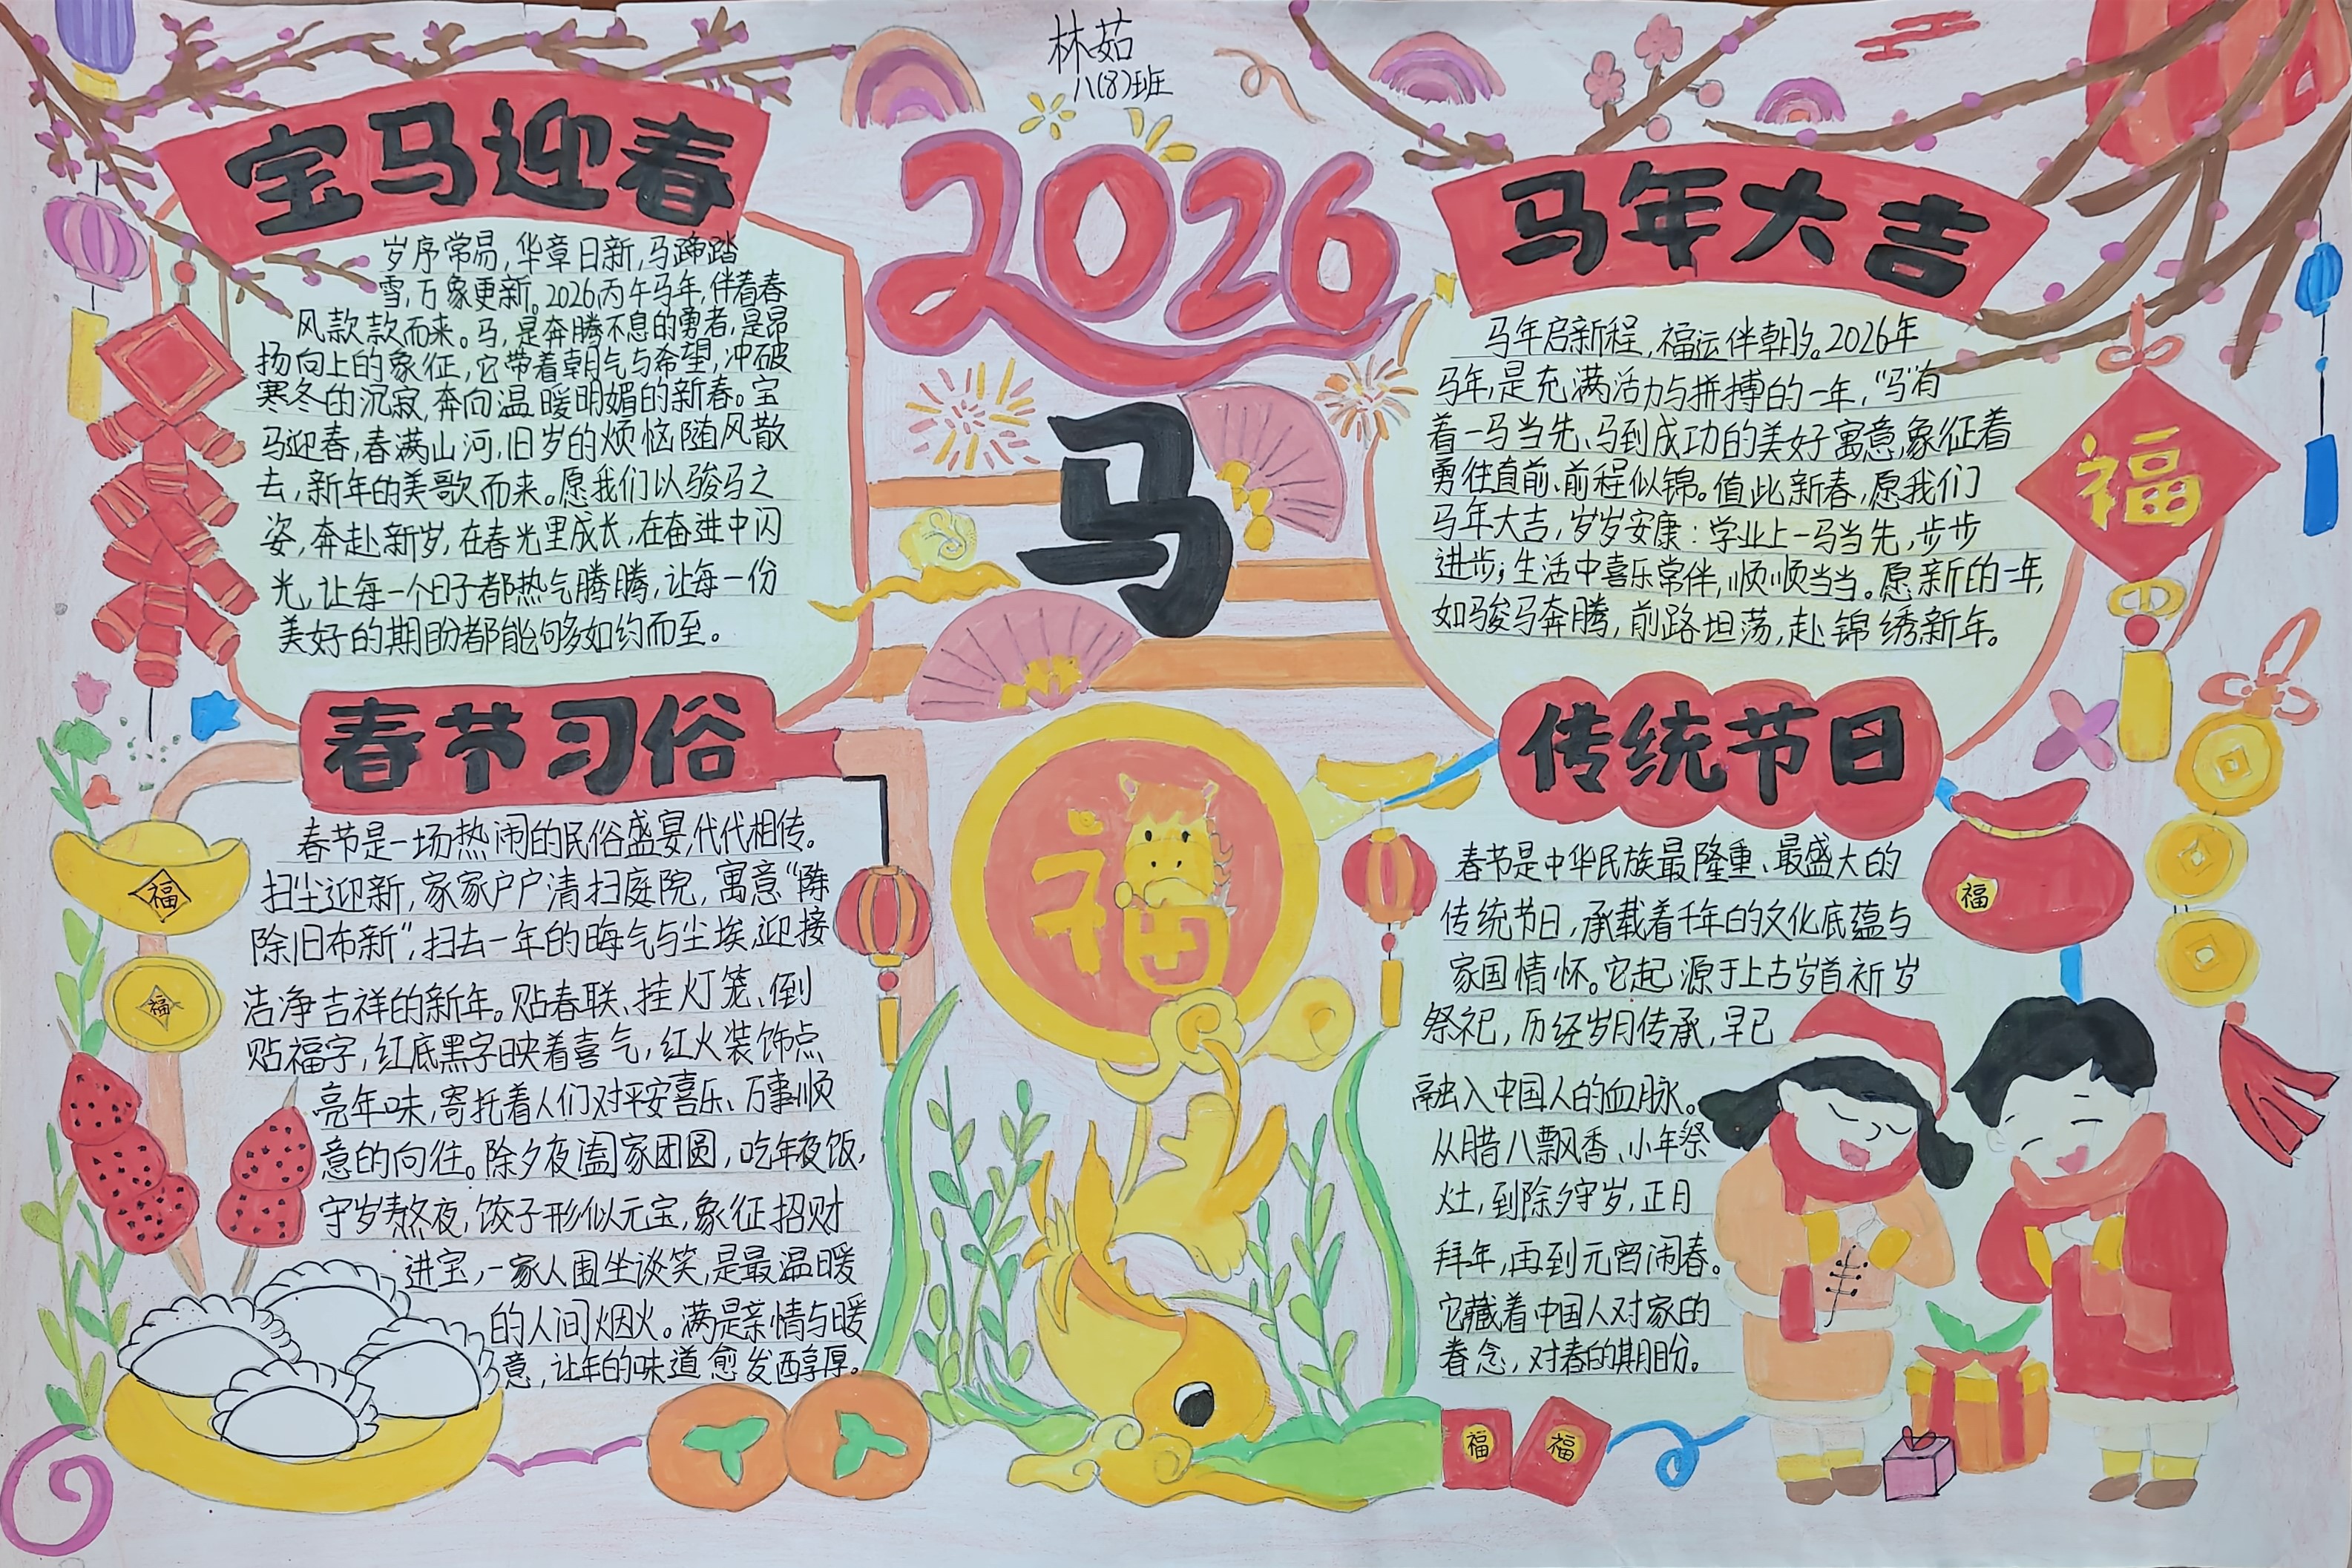 林茹
八(8)班
2026
马
宝马迎春
岁序常易,华章日新,马蹄踏
雪,万象更新。2026丙午马年,伴着春
风款款而来。马,是奔腾不息的勇者,是昂
扬向上的象征,它带着朝气与希望,冲破
寒冬的沉寂,奔向温暖明媚的新春。宝
马迎春,春满山河,旧岁的烦恼随风散
去,新年的美歌而来。愿我们以骏马之
姿,奔赴新岁,在春光里成长,在奋进中闪
光,让每一个日子都热气腾腾,让每一份
美好的期盼都能够如约而至。
马年大吉
马年启新程,福运伴朝夕。2026年
马年,是充满活力与拼搏的一年,“马”有
着一马当先、马到成功的美好寓意,象征着
勇往直前、前程似锦。值此新春,愿我们
马年大吉,岁岁安康:学业上一马当先,步步
进步;生活中喜乐常伴,顺顺当当。愿新的一年,
如骏马奔腾,前路坦荡,赴锦绣新年。
福
春节习俗
春节是一场热闹的民俗盛宴,代代相传。
扫尘迎新,家家户户清扫庭院,寓意“陈
除旧布新”,扫去一年的晦气与尘埃,迎接
洁净吉祥的新年。贴春联、挂灯笼、倒
贴福字,红底黑字映着喜气,红火装饰点
亮年味,寄托着人们对平安喜乐、万事顺
意的向往。除夕夜阖家团圆,吃年夜饭,
守岁熬夜,饺子形似元宝,象征招财
进宝,一家人围坐谈笑,是最温暖
的人间烟火。满是亲情与暖
意,让年的味道愈发醇厚。
福
福
福
传统节日
春节是中华民族最隆重、最盛大的
传统节日,承载着千年的文化底蕴与
家国情怀。它起源于上古岁首祈岁
祭祀,历经岁月传承,早已
融入中国人的血脉。
从腊八飘香、小年祭
灶,到除夕守岁,正月
拜年,再到元宵闹春。
它藏着中国人对家的
眷念,对春的期盼。
福
福
福